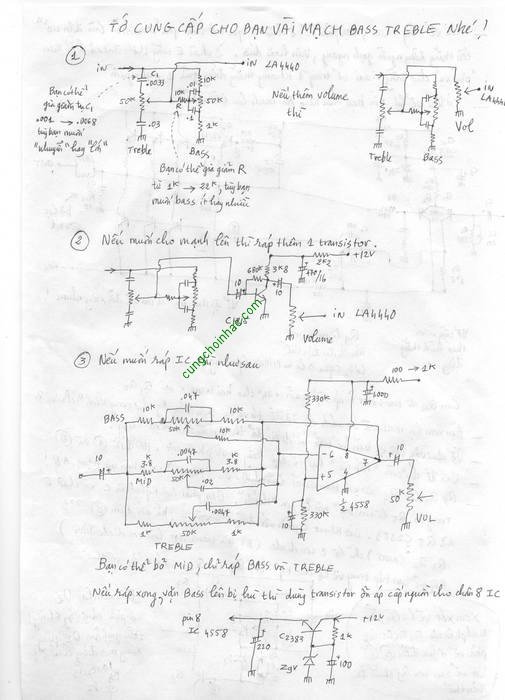 TỚ CUNG CẤP CHO BẠN VÀI MẠCH BASS TREBLE Nhé!
1
iN
iN LA4440
C1
.0033
50K
.03
Treble
10K
R
.01
.1
10K
50K
1K
Bass
Bạn có thể
gia giảm từ C1
.001 → .0068
tùy bạn muốn
"nhuyễn" hay "lớn"
Bạn có thể gia giảm R
từ 1K → 22K, tùy bạn
muốn bass ít hay nhiều
Nếu thêm volume
thì
iN
LA4440
Vol
Treble
Bass
2 Nếu muốn cho mạnh lên thì ráp thêm 1 transistor.
+12V
2K2
470/16
680K
3K8
10
10
iN LA4440
Volume
cungchoinhac.com
3 Nếu muốn ráp IC thì như sau
100 → 1K
1000
330K
BASS
10K
.047
50K
10K
10K
10
3.8
K
MiD
.0047
50K
3.8
K
.02
.0047
1K
50K
1K
TREBLE
6
8
7
5
4
½ 4558
10
330K
10
50K
VOL
Bạn có thể bỏ MiD, chỉ ráp BASS và TREBLE.
Nếu ráp xong, vặn Bass lên bị hú thì dùng transistor ổn áp cấp nguồn cho chân 8 IC
pin 8
IC 4558
220
C2383
+12V
1K
Z9V
100